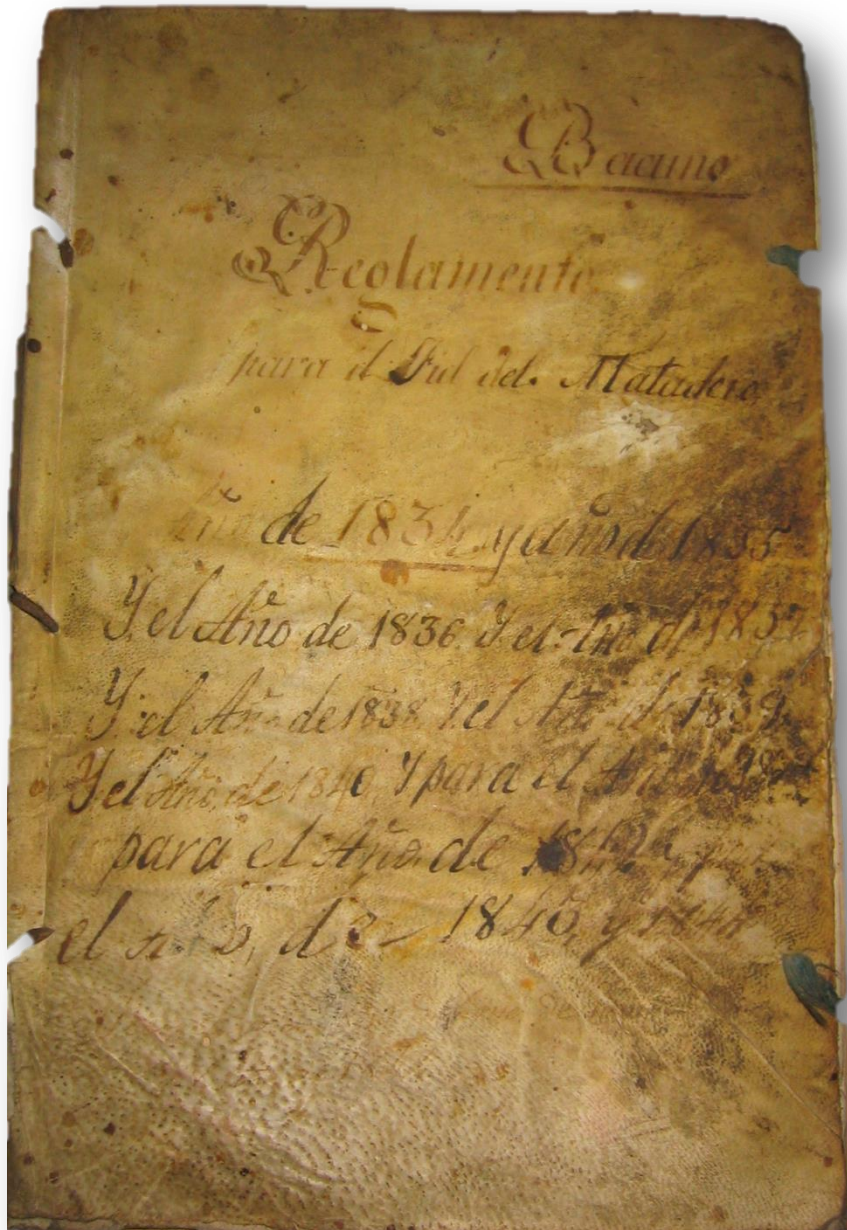 Bacuno
Reglamento
para el Fiel del Matadero
Año de 1834 y año de 1835
Y el Año de 1836 Y el Año de 1837
Y el Año de 1838 Y el Año de 1839
Y el Año de 1840 Y para el
para el Año de 1842 y para
el año, de 1843, y 1844